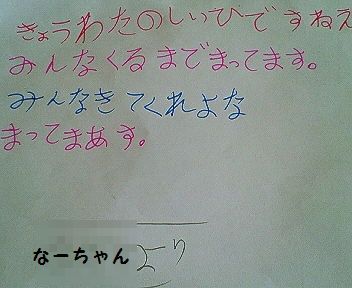 きょうわたのしいひですねえ
みんなくるまでまってます。
みんなきてくれよな
まってまあす。
なーちゃん より